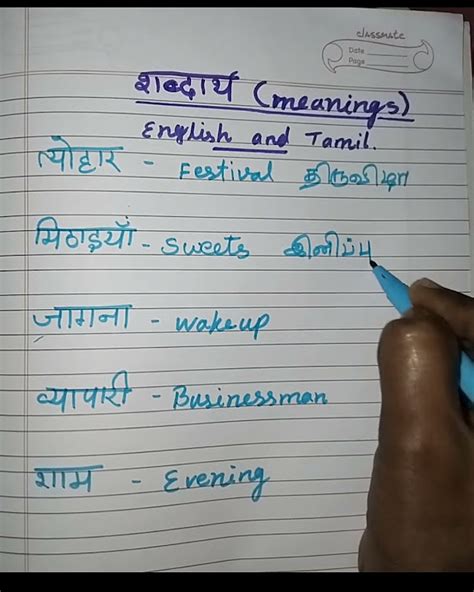 classmate
Date
Page
शब्दार्थ (meanings)
English and Tamil.
त्योहार - Festival திருவிழா
मिठाइयाँ - Sweets இனிப்பு
जागना - wakeup
व्यापारी - Businessman
शाम - Evening